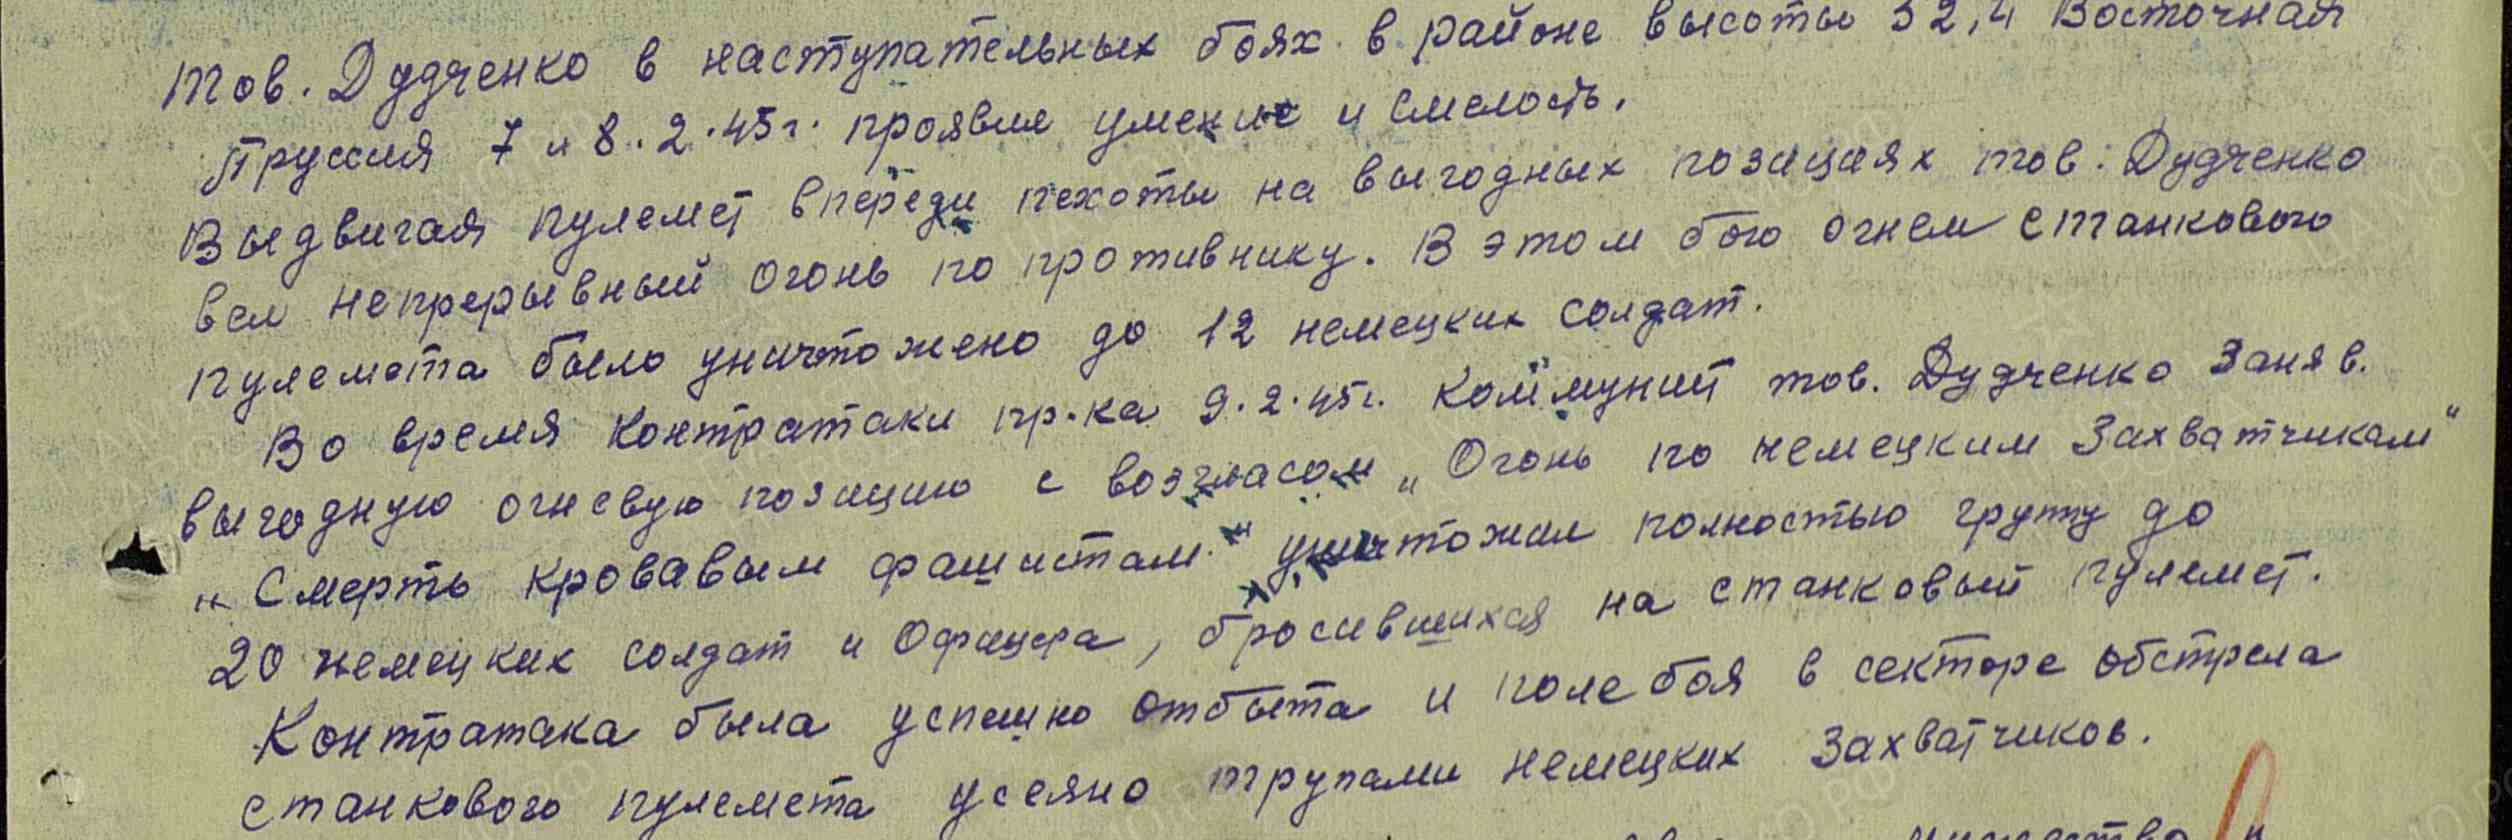 Тов. Дудченко в наступательных боях в районе высоты 32,4 Восточная
Пруссия 7 и 8.2.45г. проявил умение и смелость.
Выдвигая пулемет впереди пехоты на выгодных позициях тов. Дудченко
вел непрерывный огонь по противнику. В этом бою огнем станкового
пулемета было уничтожено до 12 немецких солдат.
Во время контратаки пр-ка 9.2.45г. Коммунист тов. Дудченко Заняв.
выгодную огневую позицию с возгласом „Огонь по немецким Захватчикам"
„Смерть кровавым фашистам." уничтожил полностью группу до
20 немецких солдат и Офицера, бросившихся на станковый пулемет.
Контратака была успешно отбыта и поле боя в секторе обстрела
станкового пулемета усеяно трупами немецких Захватчиков.